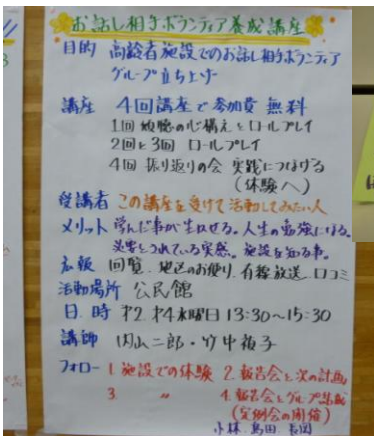 お話し相手ボランティア養成講座
目的 高齢者施設でのお話し相手ボランティア
グループ立ち上げ
講座 4回講座で参加費 無料
1回 傾聴の心構えとロールプレイ
2回と3回 ロールプレイ
4回 振り返りの会 実践につなげる
(体験へ)
受講者 この講座を受けて活動してみたい人
メリット 学んだ事が生かせる。人生の勉強になる。
必要とされている実感。施設を知る事。
広報 回覧.地区のお便り.有線放送.口コミ
活動場所 公民館
日.時 第2.第4水曜日 13:30〜15:30
講師 内山二郎・竹中
フォロー 1.施設での体験 2.報告会と次の計画
3. 〃 4.報告会とグループ結成
(定例会の開催)
小林.島田.長岡